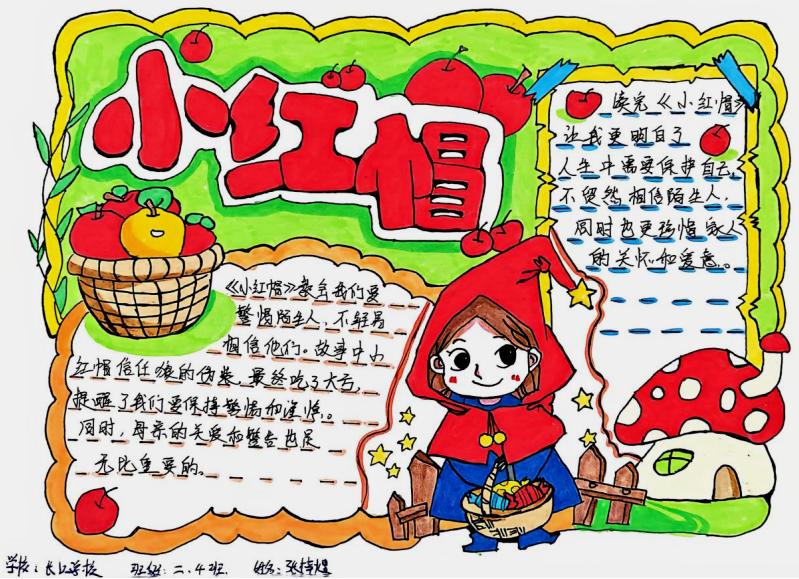 小红帽
《小红帽》教会我们要
警惕陌生人，不轻易
相信他们。故事中小
红帽信任狼的伪装，最终吃了大亏，
提醒了我们要保持警惕和谨慎。
同时，母亲的关爱和警告也是
无比重要的。
读完《小红帽》
让我更明白了
人生中需要保护自己，
不贸然相信陌生人，
同时也更珍惜家人
的关怀和爱意。
学校：长江学校 班级：二.4班 姓名：张